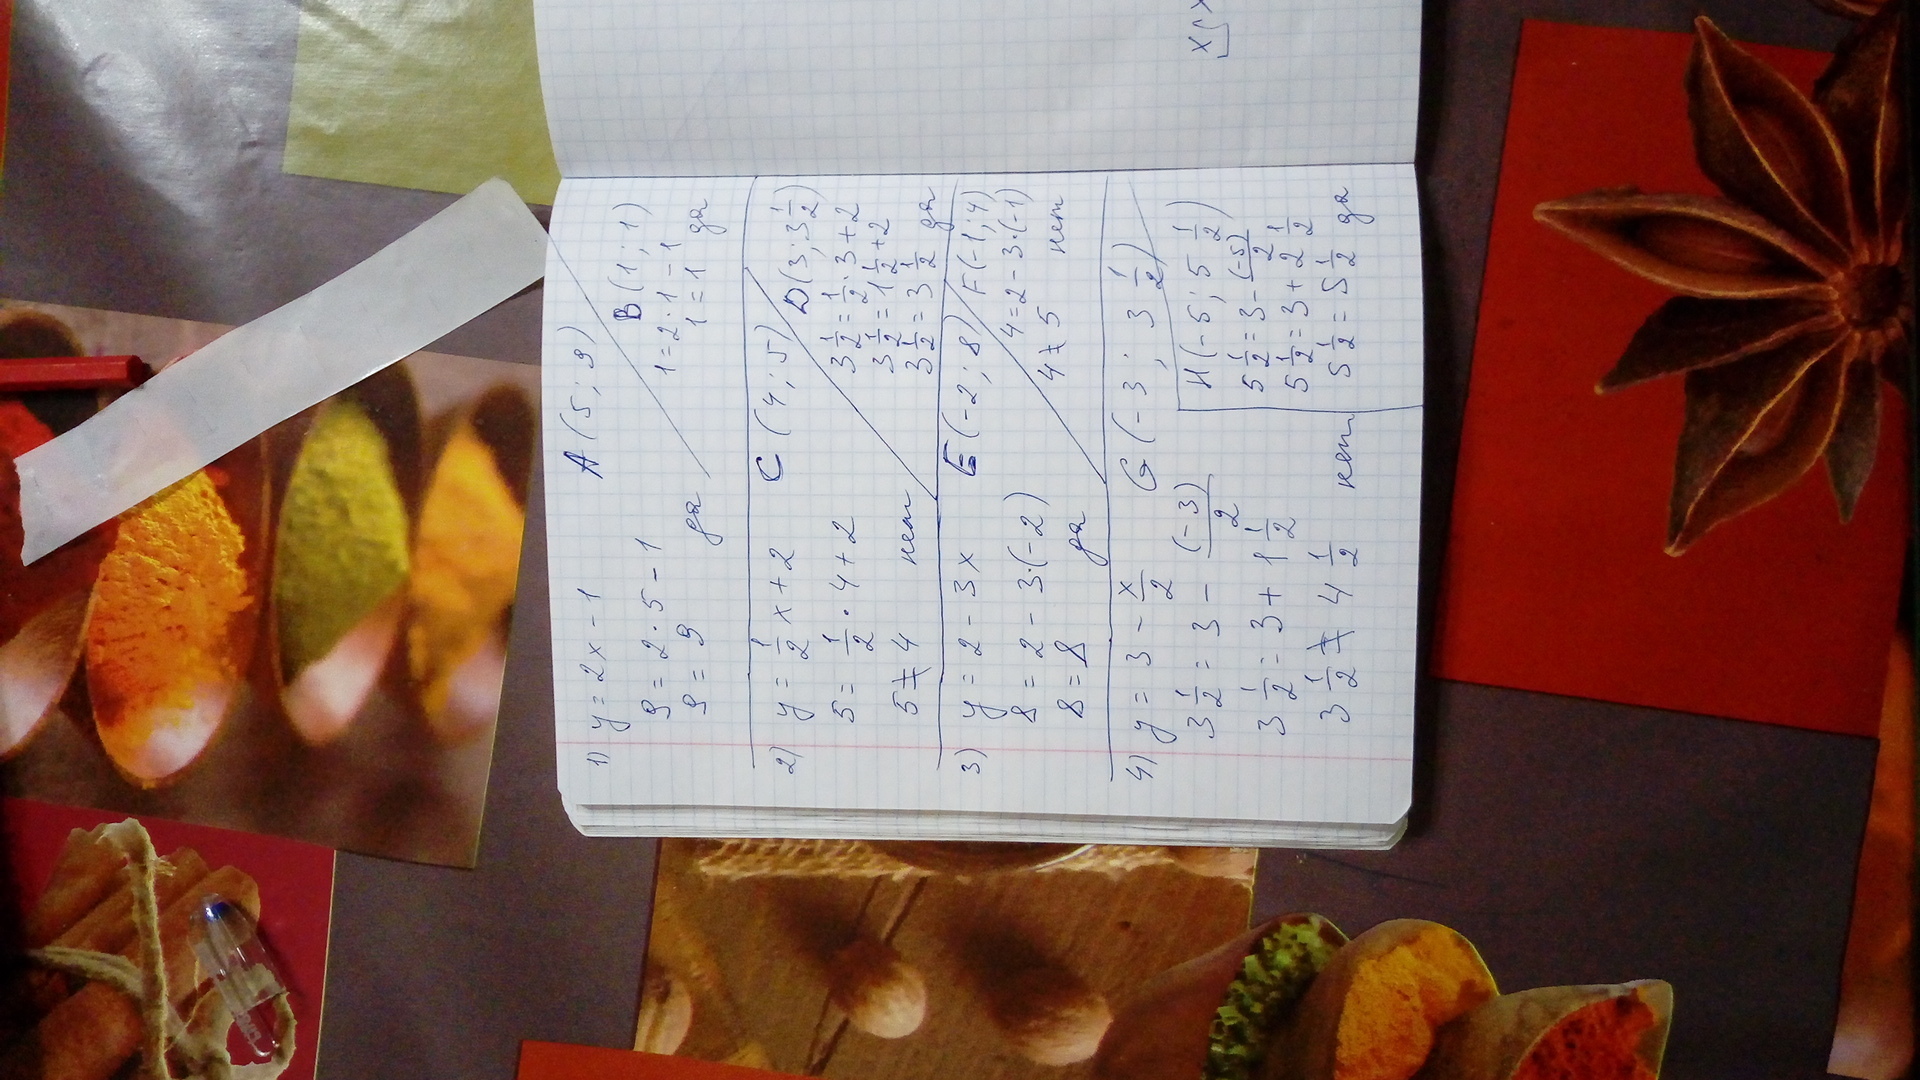 1) y = 2x - 1 A (5 ; 9)
9 = 2 · 5 - 1
9 = 9 да
B (1 ; 1)
1 = 2 · 1 - 1
1 = 1 да
2) y = 1/2 x + 2 C (4 ; 5)
5 = 1/2 · 4 + 2
5 ≠ 4 нет
D (3 ; 3 1/2)
3 1/2 = 1/2 · 3 + 2
3 1/2 = 1 1/2 + 2
3 1/2 = 3 1/2 да
3) y = 2 - 3x E (-2 ; 8)
8 = 2 - 3·(-2)
8 = 8 да
F (-1 ; 4)
4 = 2 - 3·(-1)
4 ≠ 5 нет
4) y = 3 - x/2 G (-3 ; 3 1/2)
3 1/2 = 3 - (-3)/2
3 1/2 = 3 + 1 1/2
3 1/2 ≠ 4 1/2 нет
H (-5 ; 5 1/2)
5 1/2 = 3 - (-5)/2
5 1/2 = 3 + 2 1/2
5 1/2 = 5 1/2 да